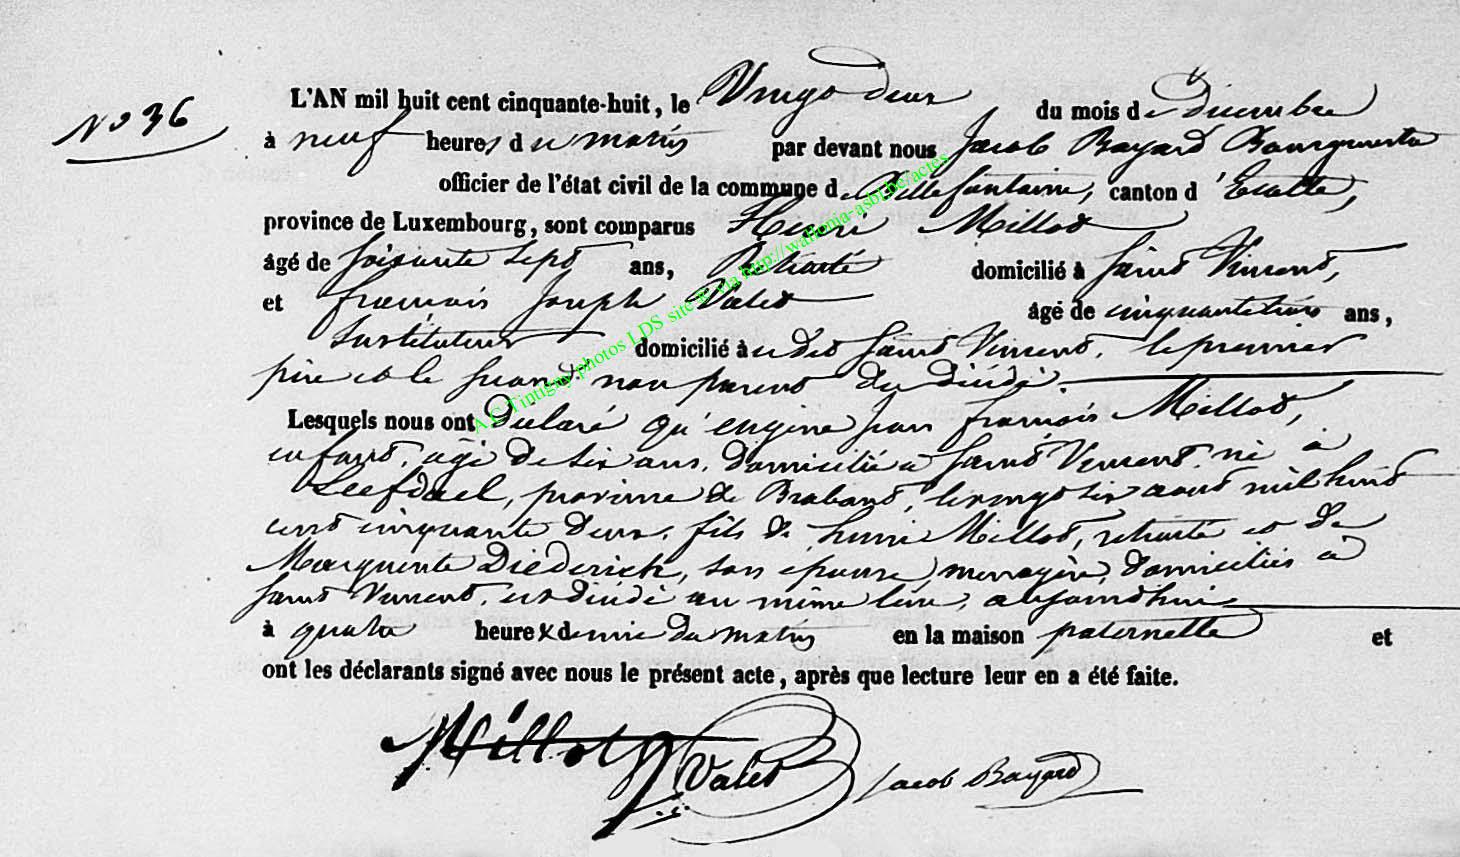 N° 36
L'AN mil huit cent cinquante-huit, le Vingt deux du mois de décembre
à neuf heures du matin par devant nous Jacob Bayard Bourgmestre
officier de l'état civil de la commune de Villefontaine, canton d'Etalle,
province de Luxembourg, sont comparus Henri Millot
âgé de soixante sept ans, Retraité domicilié à Saint Vincent,
et françois Joseph Valet âgé de cinquante trois ans,
Instituteur domicilié à u dit Saint Vincent, le premier
père et le second non parent du décédé.
Lesquels nous ont déclaré qu'eugène Jean françois Millot,
enfant, âgé de six ans, domicilié à Saint Vincent, né à
Leefdael, province de Brabant, le vingt six aout mil huit
cent cinquante deux, fils de henri Millot, retraité et de
Marguerite Diederich, son épouse, menagère, domiciliés à
Saint Vincent, est décédé au même lieu, aujourdhui
à quatre heures demie du matin en la maison paternelle et
ont les déclarants signé avec nous le présent acte, après que lecture leur en a été faite.
Millot Valet Jacob Bayard
A.C. Tintigny photos LDS site & via http://wallonia-asbl.be/actes